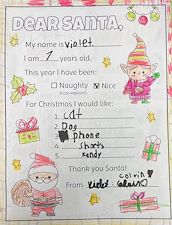 DEAR SANTA,
My name is violet
I am 7 years old.
This year I have been:
Naughty Nice
(I can explain)
For Christmas I would like:
1. cat
2. Dog
3. phone
4. Shorts
5. Kandy
Thank you Santa!
colvin
From Violet